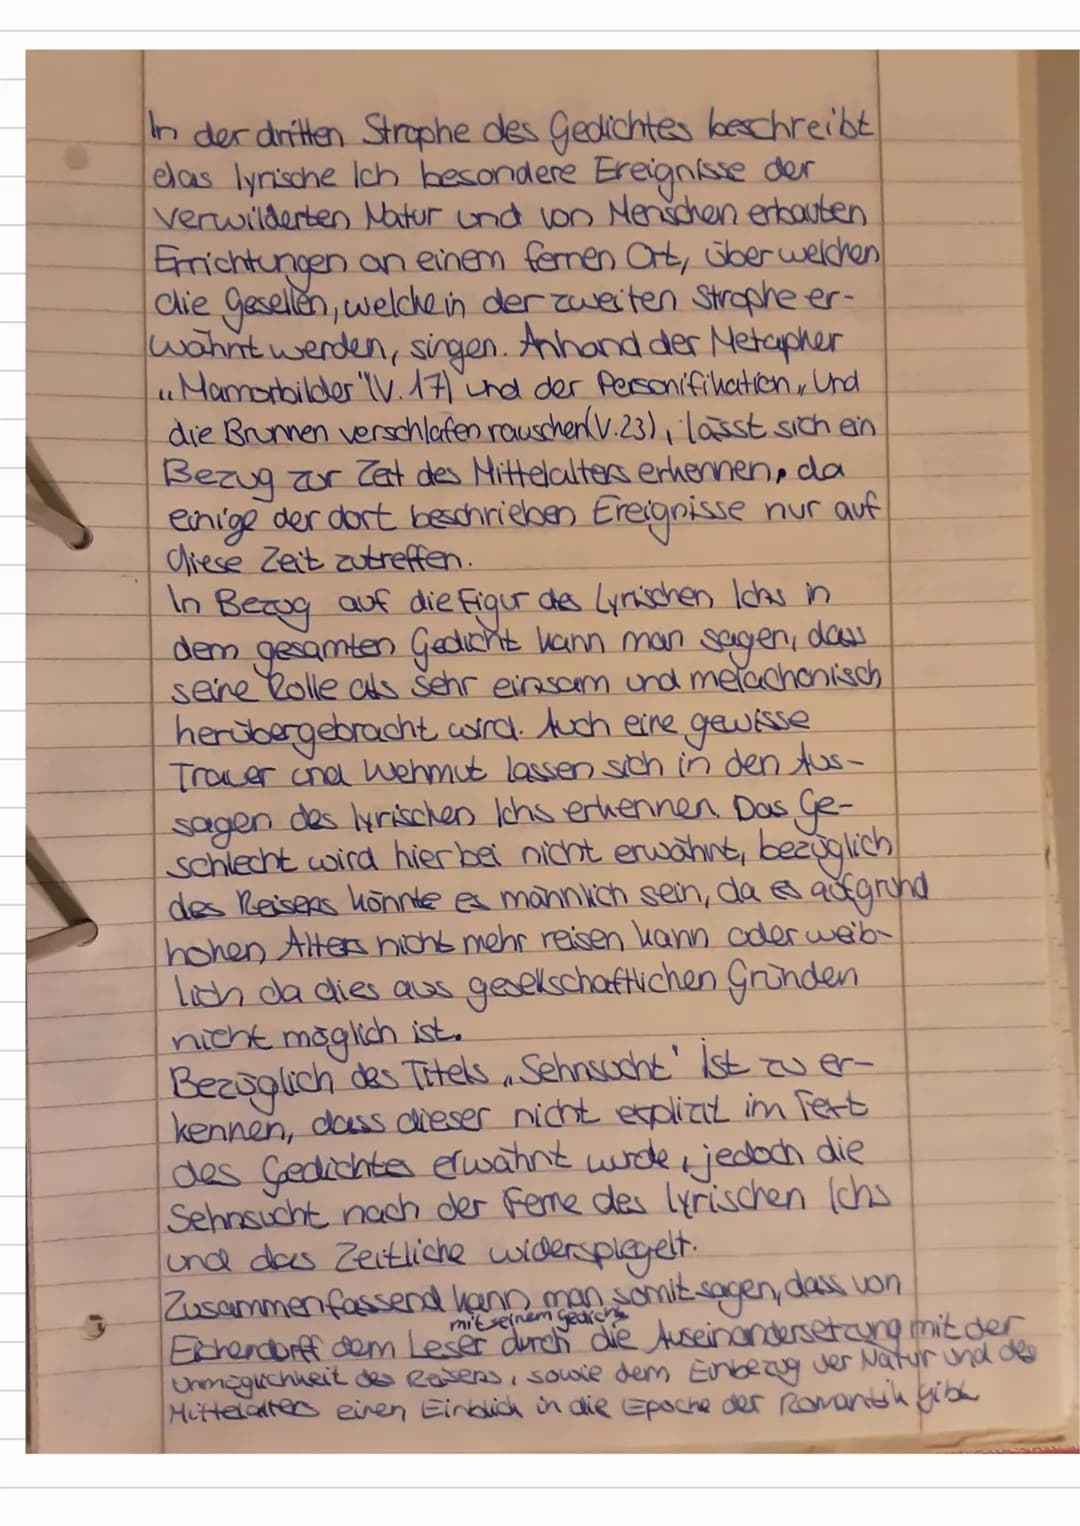 In der dritten Strophe des Gedichtes beschreibt
das lyrische Ich besondere Ereignisse der
verwilderten Natur und von Menschen erbauten
Errichtungen an einem fernen Ort, über welchen
die Gesellen, welche in der zweiten Strophe er-
wähnt werden, singen. Anhand der Metapher
„Mamorbilder" (V. 17) und der Personifikation „Und
die Brunnen verschlafen rauschen(V.23), lässt sich ein
Bezug zur Zeit des Mittelalters erkennen, da
einige der dort beschrieben Ereignisse nur auf
diese Zeit zutreffen.
In Bezug auf die Figur des Lyrischen Ichs in
dem gesamten Gedicht kann man sagen, dass
seine Rolle als sehr einsam und melachonisch
herübergebracht wird. Auch eine gewisse
Trauer und Wehmut lassen sich in den Aus-
sagen des lyrischen Ichs erkennen. Das Ge-
schlecht wird hierbei nicht erwähnt, bezüglich
des Reisens könnte es männlich sein, da es aufgrund
hohen Alters nicht mehr reisen kann oder weib-
lich da dies aus gesellschaftlichen Gründen
nicht möglich ist.
Bezüglich des Titels „Sehnsucht" ist zu er-
kennen, dass dieser nicht explizit im Text
des Gedichtes erwähnt wurde, jedoch die
Sehnsucht nach der Ferne des lyrischen Ichs
und das Zeitliche widerspiegelt.
Zusammenfassend kann man somit sagen, dass von
mit seinem Gedicht
Eichendorff dem Leser durch die Auseinandersetzung mit der
Unmöglichkeit des Reisens, sowie dem Einbezug der Natur und des
Mittelalters einen Einblick in die Epoche der Romantik gibt